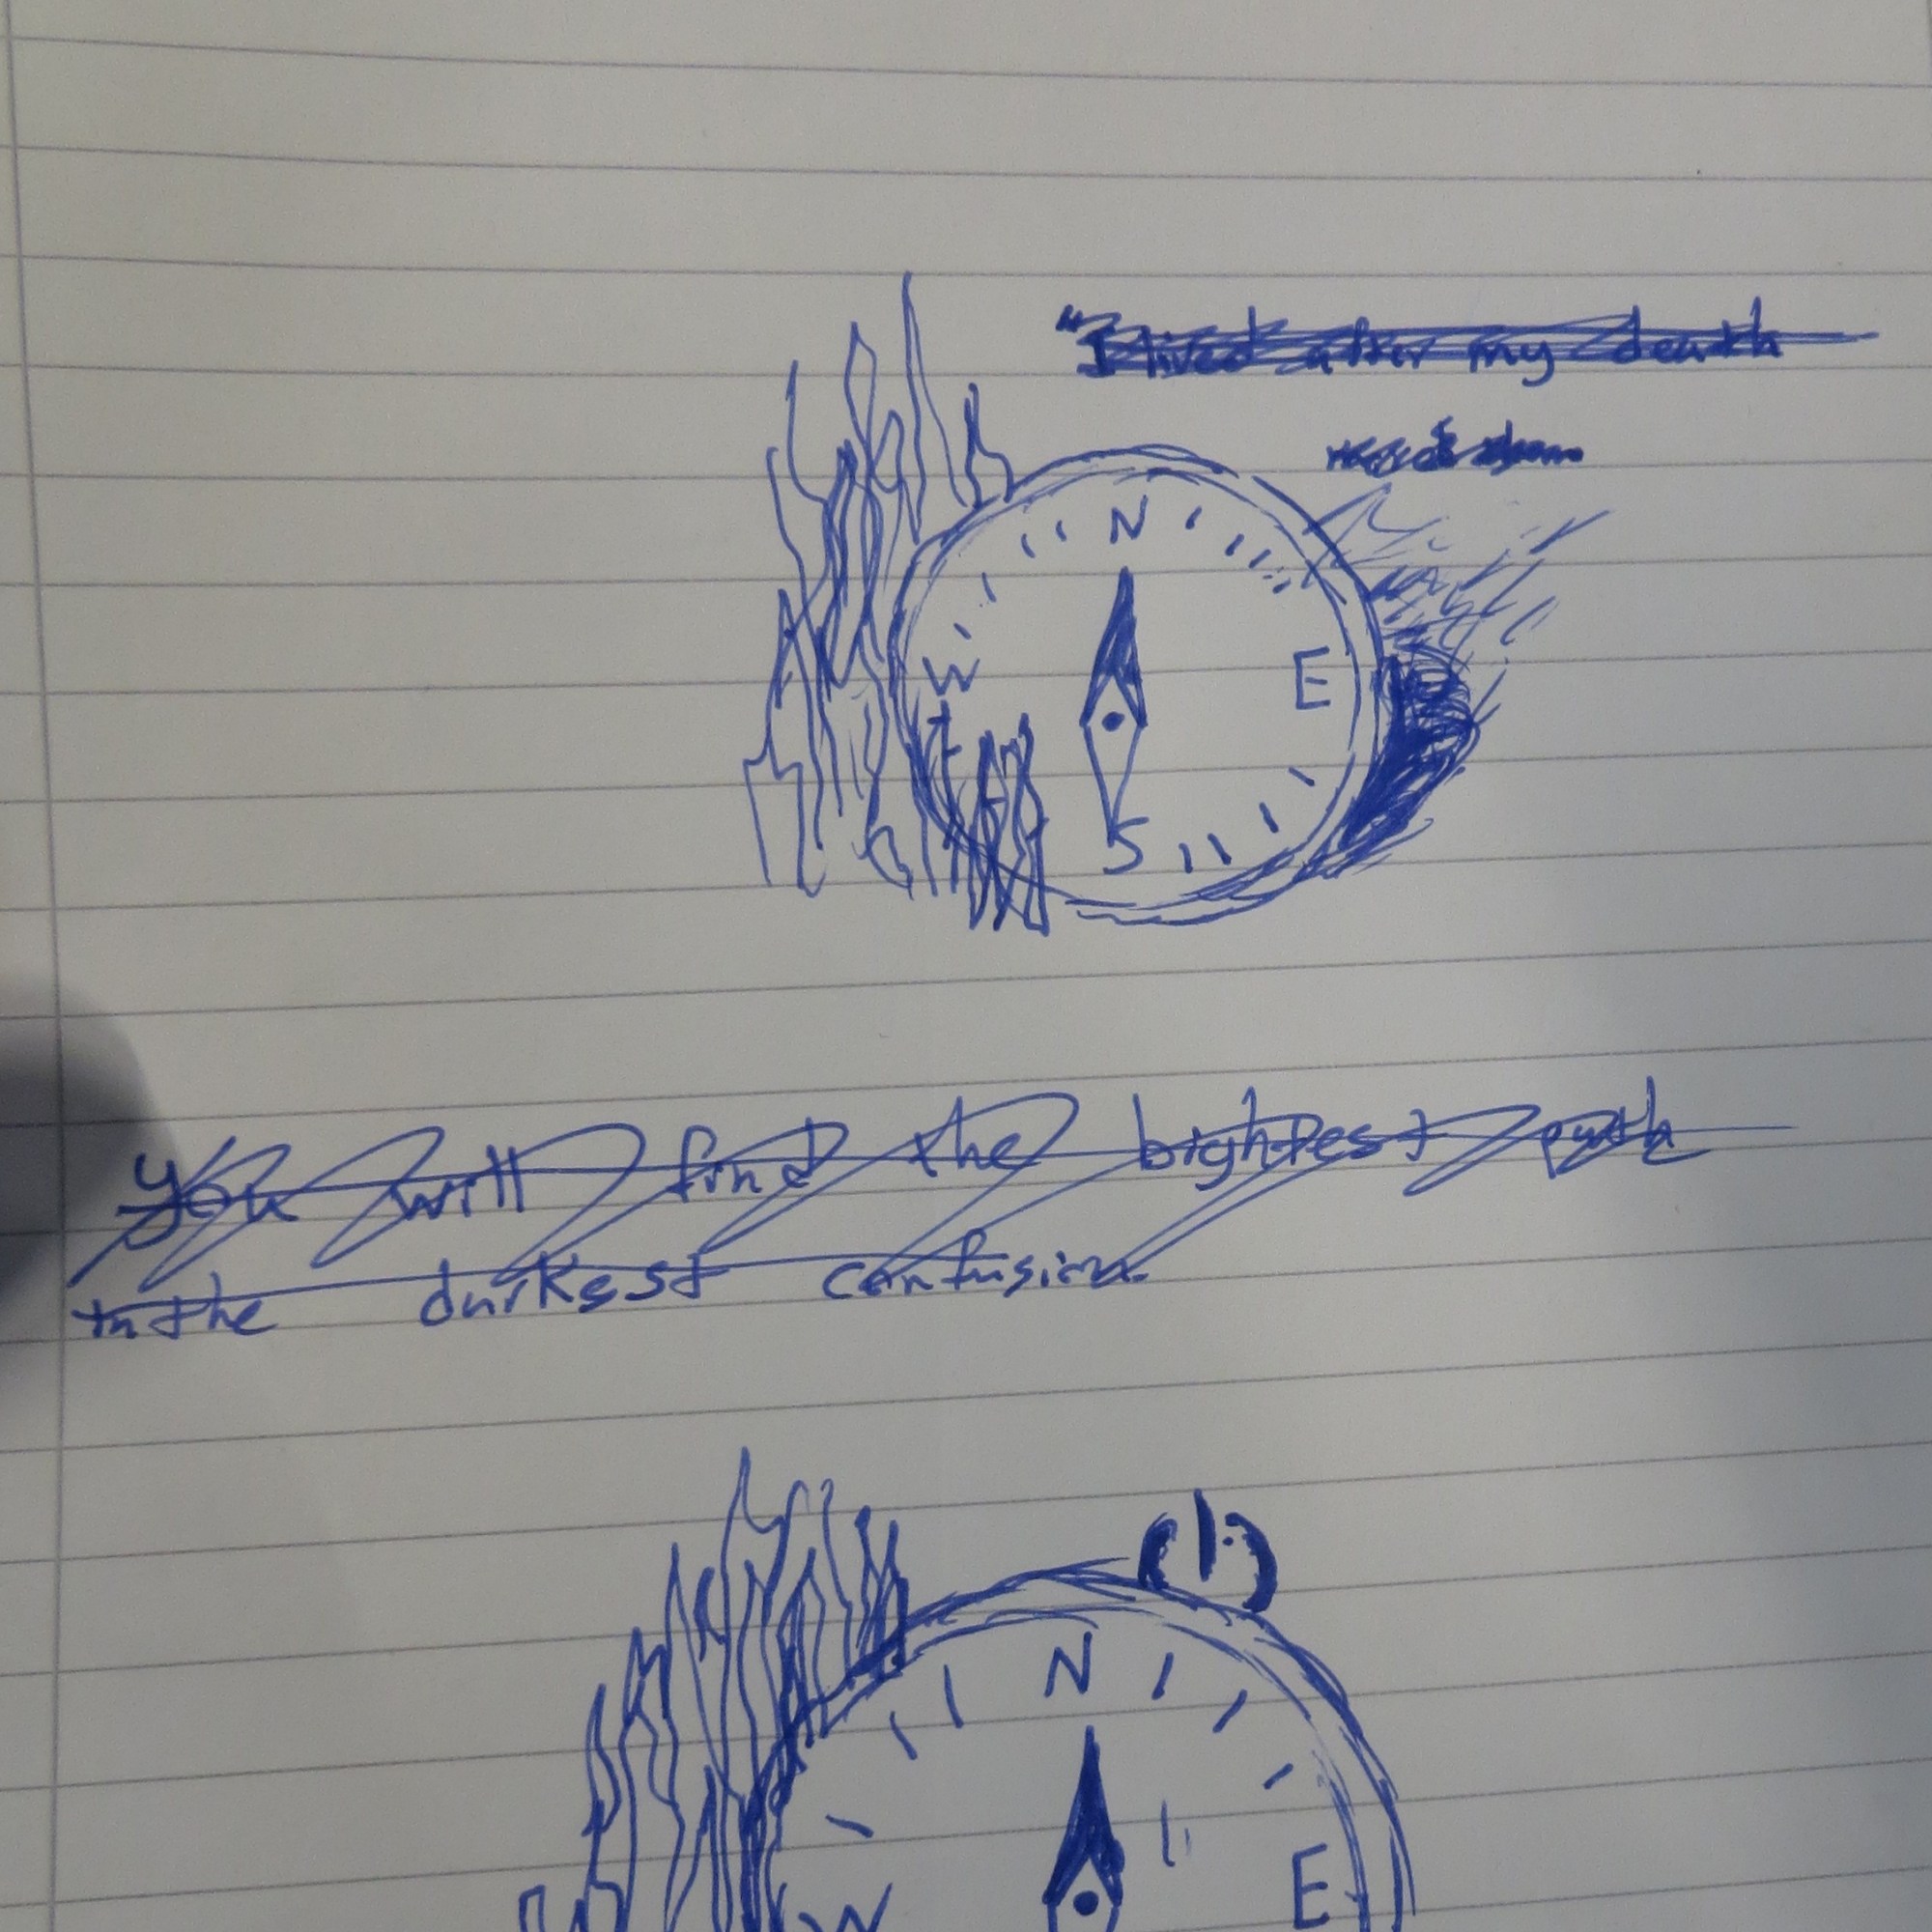 "I lived after my death
N
W
E
S
you will find the brightest path
in the darkest confusion
N
W
E